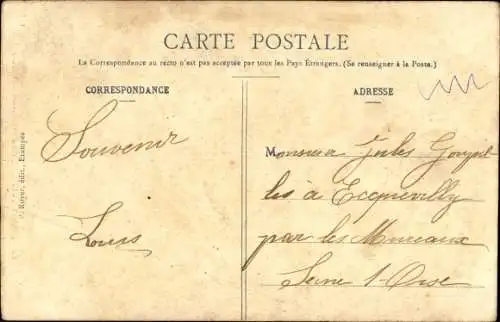 CARTE POSTALE
La Correspondance au recto n'est pas acceptée par tous les Pays Étrangers. (Se renseigner à la Poste.)
CORRESPONDANCE
Souvenir
Louis
ADRESSE
Monsieur Jules Goujet
lis à Ecquevilly
par les Mureaux
Seine & Oise
Royer, édit., Etampes